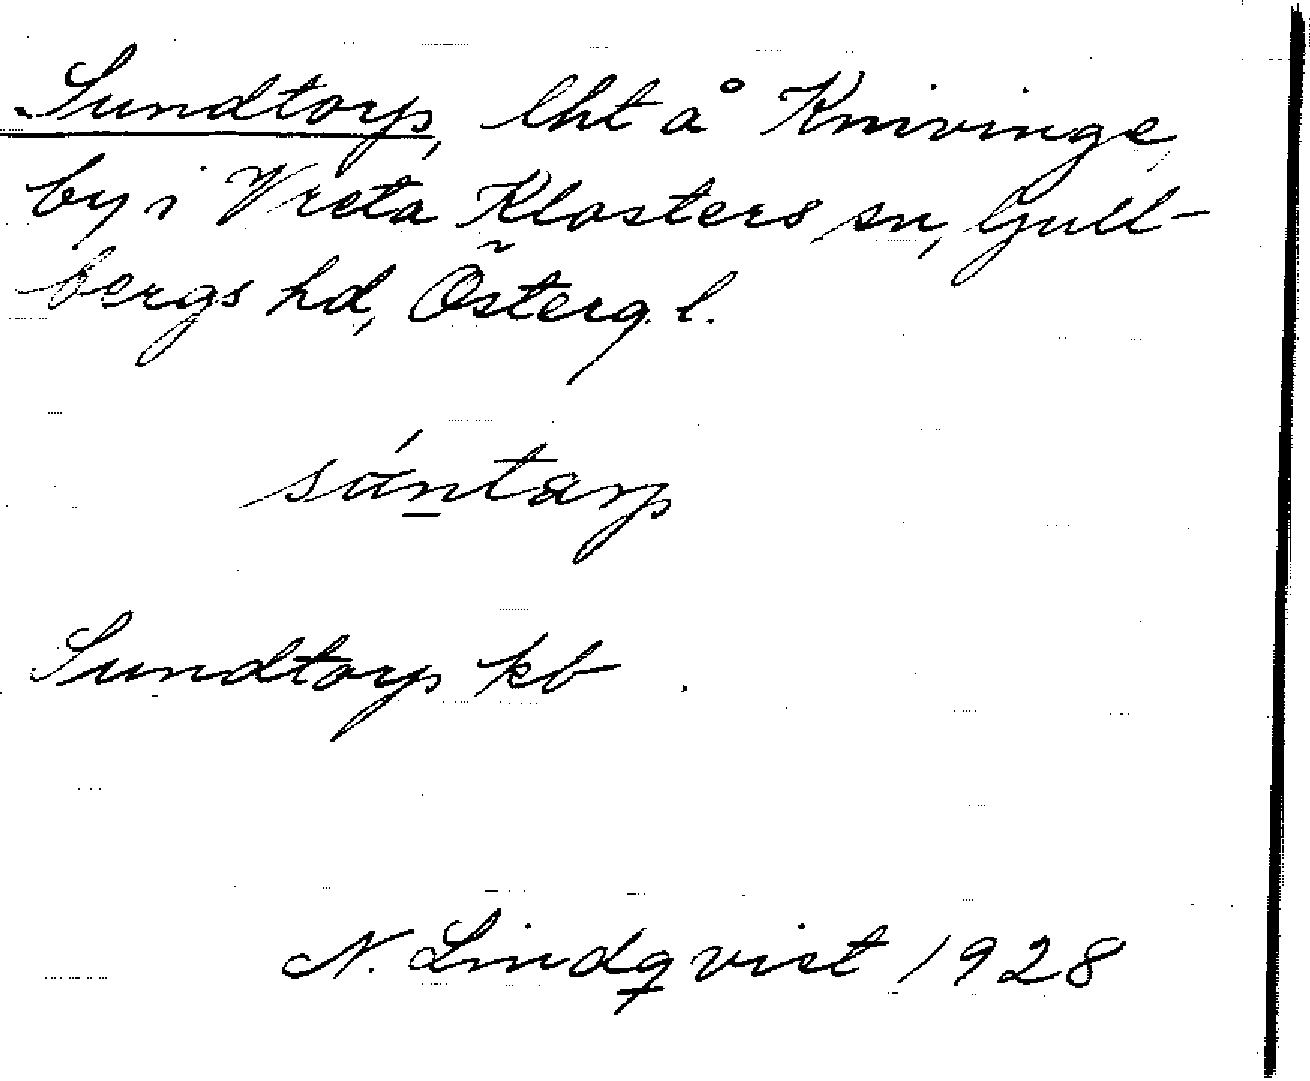 Sundtorp, lht å Knivinge
by i Vreta Klosters sn, Gull-
bergs hd, Österg. l.
sántarp
Sundtorp kb
N. Lindqvist 1928